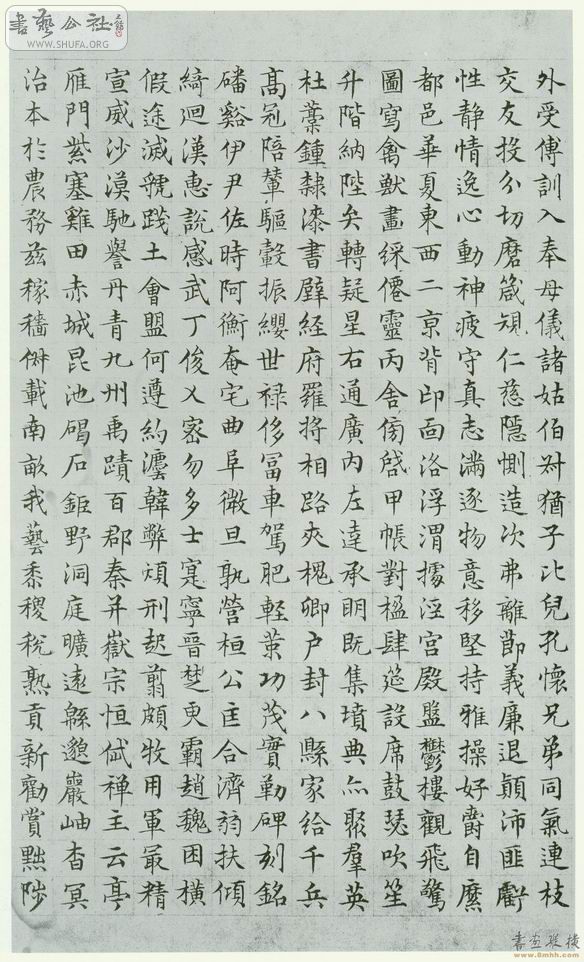 外受傅訓入奉母儀諸姑伯叔猶子比兒孔懷兄弟同氣連枝
交友投分切磨箴規仁慈隱惻造次弗離節義廉退顛沛匪虧
性静情逸心動神疲守真志滿逐物意移堅持雅操好爵自縻
都邑華夏東西二京背邙面洛浮渭據涇宮殿盤鬱樓觀飛驚
圖寫禽獸畫綵僊靈丙舍傍啓甲帳對楹肆筵設席鼓瑟吹笙
升階納陛弁轉疑星右通廣内左達承明既集墳典亦聚羣英
杜藁鍾隸漆書壁經府羅將相路夾槐卿户封八縣家給千兵
高冠陪輦驅轂振纓世禄侈富車駕肥輕策功茂實勒碑刻銘
磻谿伊尹佐時阿衡奄宅曲阜微旦孰營桓公匡合濟弱扶傾
綺迴漢惠說感武丁俊乂密勿多士寔寧晉楚更霸趙魏困横
假途滅虢踐土會盟何遵約灋韓弊煩刑起翦頗牧用軍最精
宣威沙漠馳譽丹青九州禹蹟百郡秦并嶽宗恒岱禅主云亭
雁門紫塞雞田赤城昆池碣石鉅野洞庭曠遠緜邈巖岫杳冥
治本於農務兹稼穡俶載南畝我藝黍稷稅熟貢新勸賞黜陟
書藝公社
WWW.SHUFA.ORG
書画縱橫
www.8mhh.com